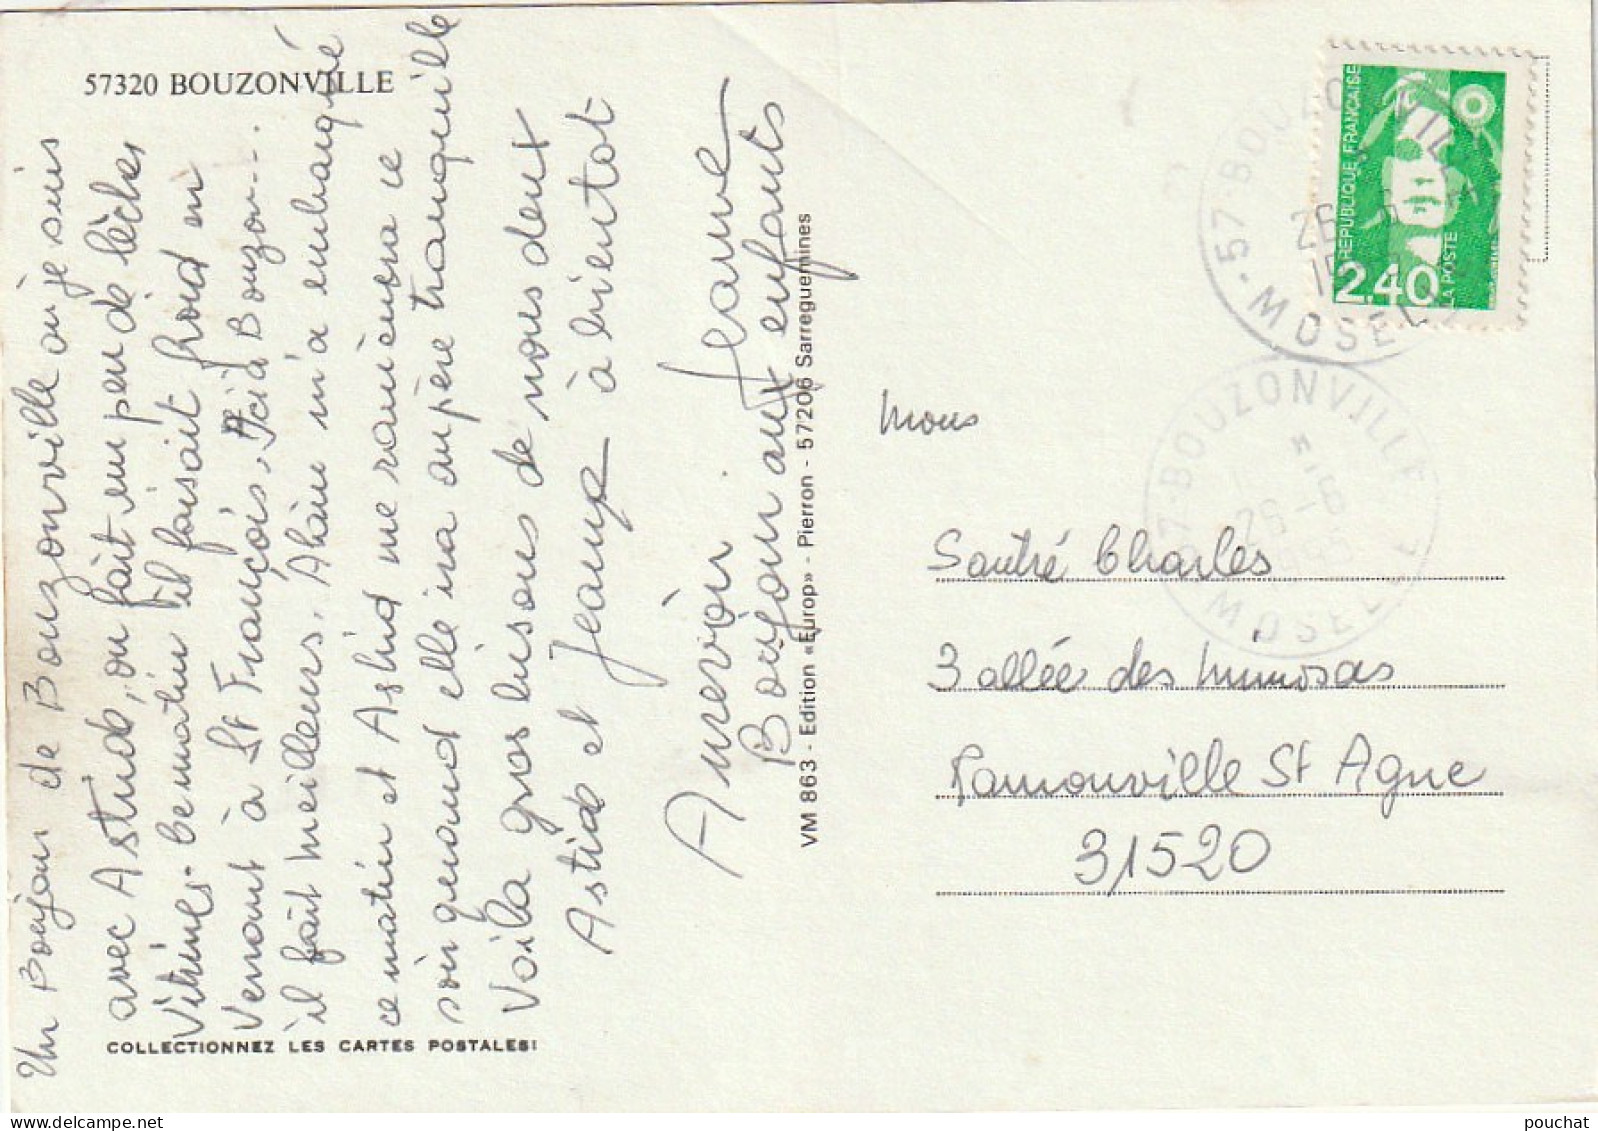 57320 BOUZONVILLE
Un Bonjour de Bouzonville où je suis
avec Astrid, on fait un peu de lèches
Vitrines. ce matin il faisait froid en
Venant à St François, Ici à Bouzon...
il fait meilleurs. Alain m'a embarqué
ce matin et Astrid me ramènera ce
soir quand elle ira au père tranquille
Voila gros bisous de nous deux
Astrid et Jeanne à bientot
Aurevoir Jeanne
Bonjour aux enfants
COLLECTIONNEZ LES CARTES POSTALES!
VM 863 - Edition «Europ» - Pierron - 57206 Sarreguemines
RÉPUBLIQUE FRANÇAISE
2,40
LA POSTE
57-BOUZONVILLE
26
MOSELLE
57-BOUZONVILLE
26-6
1995
MOSELLE
Mons
Santré Charles
3 allée des mimosas
Ramonville St Agne
31520
pouchat